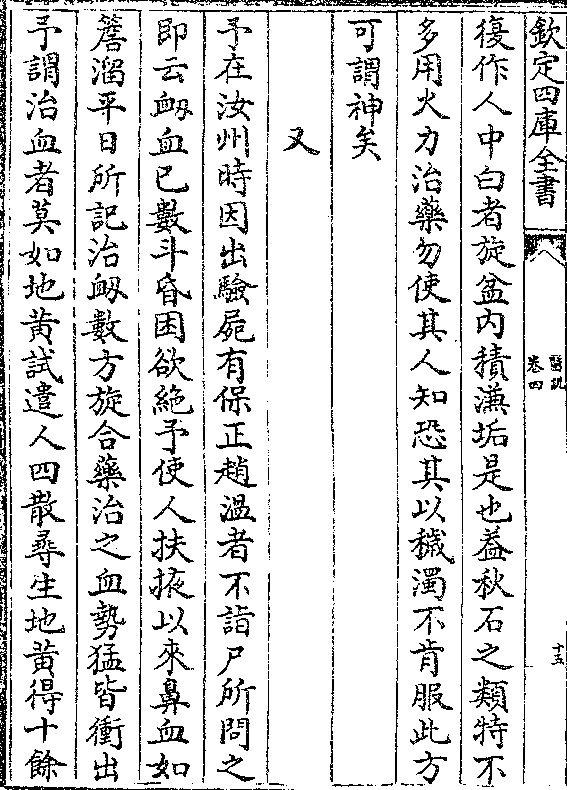 欽定四庫全書
醫説
卷四
十五
復作人中白者旋盆内積濂垢是也葢秋石之類特不
多用火力治藥勿使其人知恐其以穢濁不肯服此方
可謂神矣
又
予在汝州時因出驗屍有保正趙溫者不詣尸所問之
即云衂血已數斗昏困欲絶予使人扶掖以來鼻血如
簷溜平日所記治衂數方旋合藥治之血勢猛皆衝出
予謂治血者莫如地黄試遣人四散尋生地黄得十餘